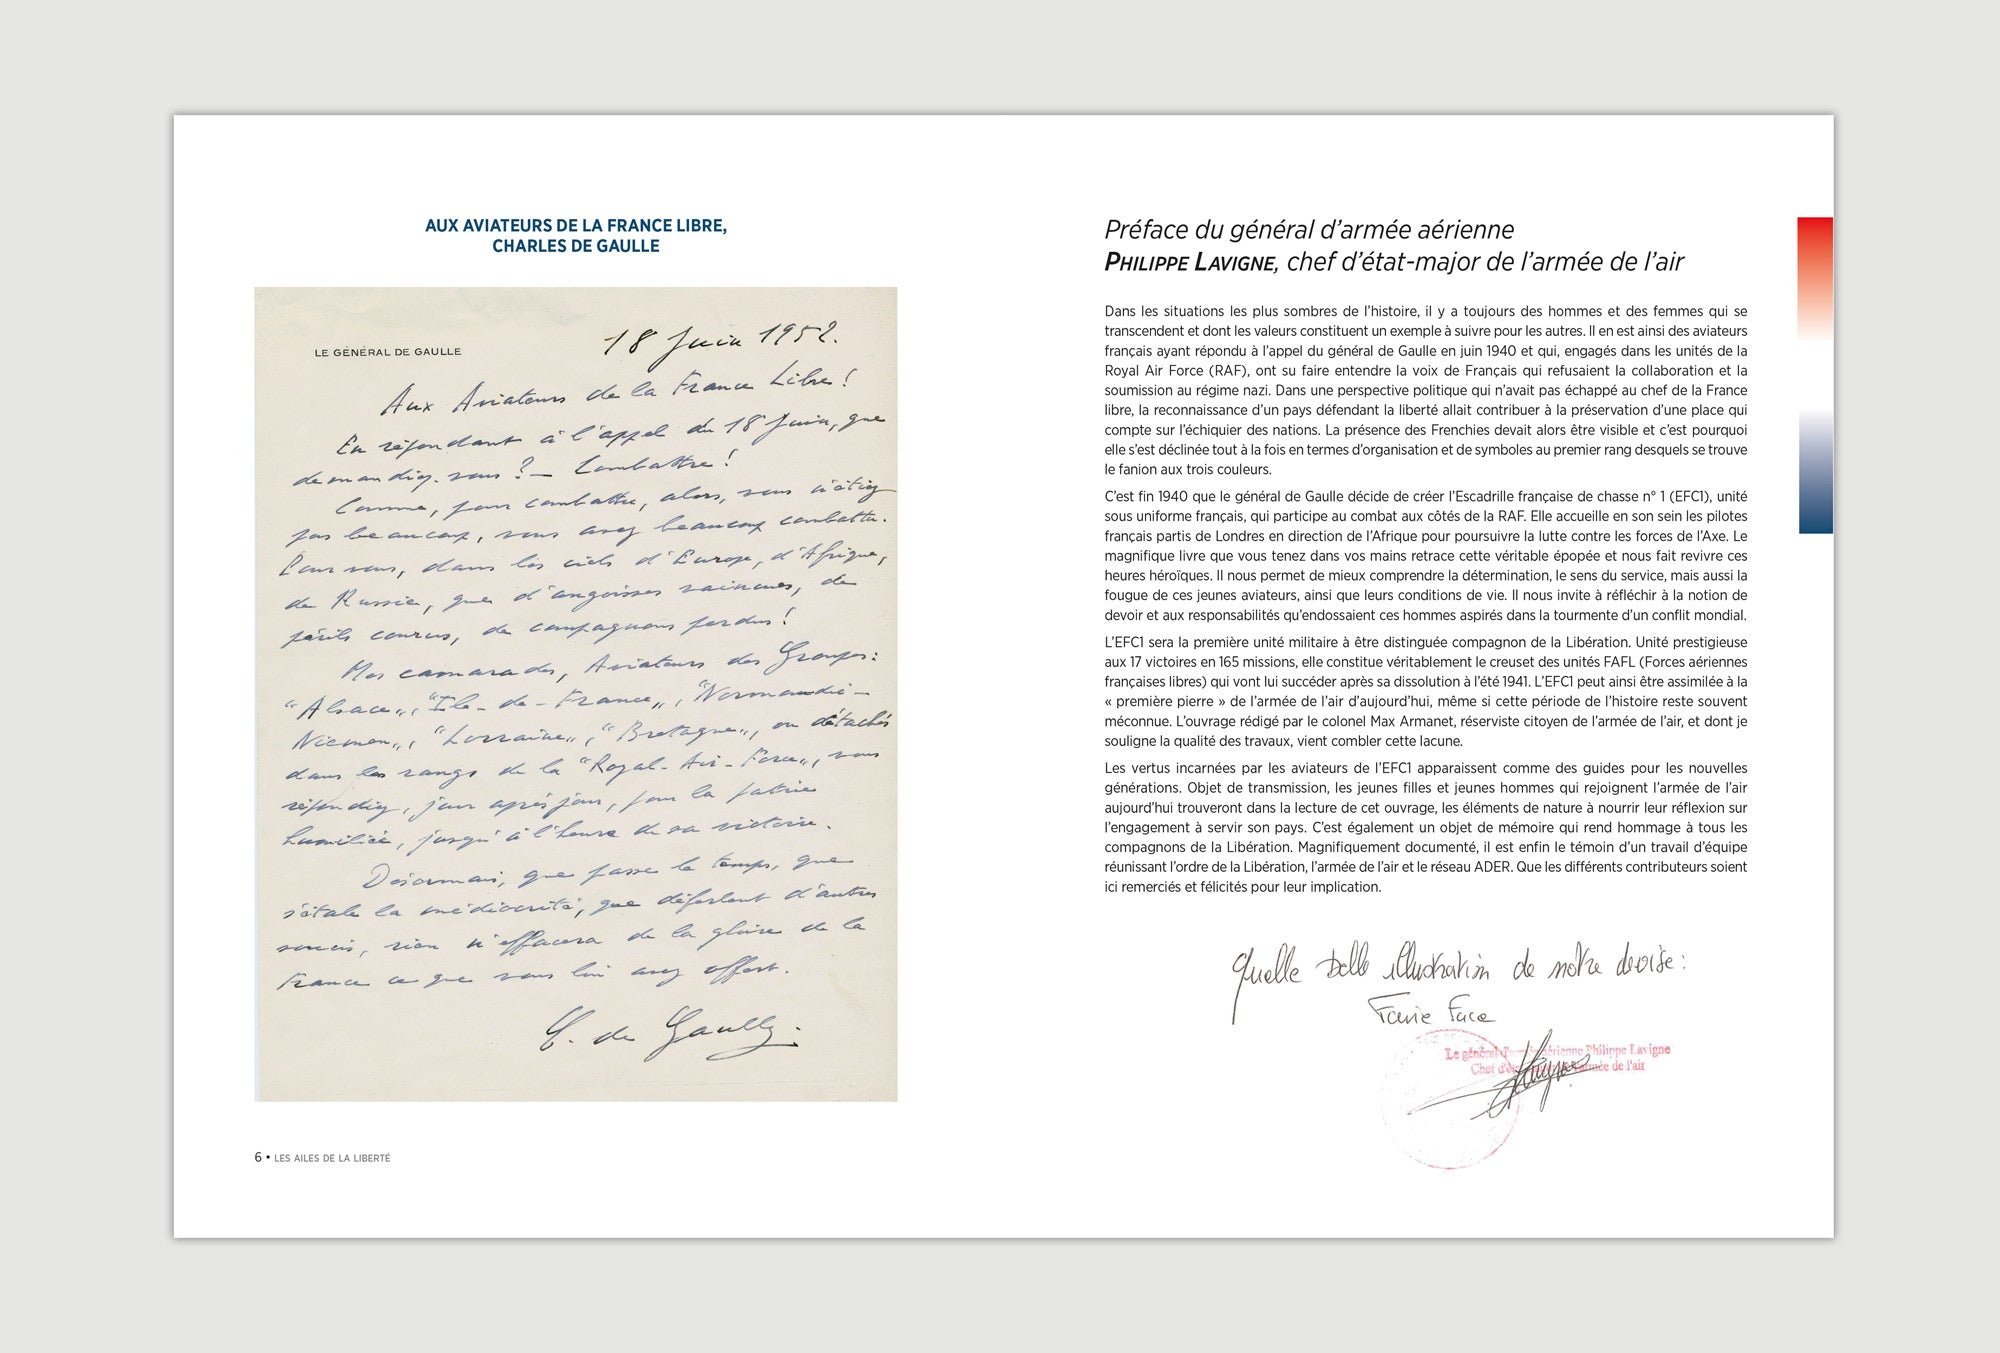 AUX AVIATEURS DE LA FRANCE LIBRE,
CHARLES DE GAULLE
LE GÉNÉRAL DE GAULLE
18 Juin 1952.
Aux Aviateurs de la France Libre!
En répondant à l'appel du 18 Juin, que
demandiez-vous ? — Combattre!
Comme, pour combattre, alors, vous n'étiez
pas beaucoup, vous avez beaucoup combattu.
Pour vous, dans les ciels d'Europe, d'Afrique,
de Russie, que d'angoisses vaincues, de
périls courus, de compagnons perdus!
Mes camarades, Aviateurs des Groupes:
"Alsace", "Ile-de-France", "Normandie-
Niemen", "Lorraine", "Bretagne", ou détachés
dans les rangs de la "Royal-Air-Force", vous
répondiez, jour après jour, pour la patrie
humiliée, jusqu'à l'heure de sa victoire.
Désormais, que passe le temps, que
s'étale la médiocrité, que déferlent d'autres
soucis, rien n'effacera de la gloire de la
France ce que vous lui avez offert.
C. de Gaulle.
6 • LES AILES DE LA LIBERTÉ
Préface du général d'armée aérienne
PHILIPPE LAVIGNE, chef d'état-major de l'armée de l'air
Dans les situations les plus sombres de l'histoire, il y a toujours des hommes et des femmes qui se
transcendent et dont les valeurs constituent un exemple à suivre pour les autres. Il en est ainsi des aviateurs
français ayant répondu à l'appel du général de Gaulle en juin 1940 et qui, engagés dans les unités de la
Royal Air Force (RAF), ont su faire entendre la voix de Français qui refusaient la collaboration et la
soumission au régime nazi. Dans une perspective politique qui n'avait pas échappé au chef de la France
libre, la reconnaissance d'un pays défendant la liberté allait contribuer à la préservation d'une place qui
compte sur l'échiquier des nations. La présence des Frenchies devait alors être visible et c'est pourquoi
elle s'est déclinée tout à la fois en termes d'organisation et de symboles au premier rang desquels se trouve
le fanion aux trois couleurs.
C'est fin 1940 que le général de Gaulle décide de créer l'Escadrille française de chasse n° 1 (EFC1), unité
sous uniforme français, qui participe au combat aux côtés de la RAF. Elle accueille en son sein les pilotes
français partis de Londres en direction de l'Afrique pour poursuivre la lutte contre les forces de l'Axe. Le
magnifique livre que vous tenez dans vos mains retrace cette véritable épopée et nous fait revivre ces
heures héroïques. Il nous permet de mieux comprendre la détermination, le sens du service, mais aussi la
fougue de ces jeunes aviateurs, ainsi que leurs conditions de vie. Il nous invite à réfléchir à la notion de
devoir et aux responsabilités qu'endossaient ces hommes aspirés dans la tourmente d'un conflit mondial.
L'EFC1 sera la première unité militaire à être distinguée compagnon de la Libération. Unité prestigieuse
aux 17 victoires en 165 missions, elle constitue véritablement le creuset des unités FAFL (Forces aériennes
françaises libres) qui vont lui succéder après sa dissolution à l'été 1941. L'EFC1 peut ainsi être assimilée à la
« première pierre » de l'armée de l'air d'aujourd'hui, même si cette période de l'histoire reste souvent
méconnue. L'ouvrage rédigé par le colonel Max Armanet, réserviste citoyen de l'armée de l'air, et dont je
souligne la qualité des travaux, vient combler cette lacune.
Les vertus incarnées par les aviateurs de l'EFC1 apparaissent comme des guides pour les nouvelles
générations. Objet de transmission, les jeunes filles et jeunes hommes qui rejoignent l'armée de l'air
aujourd'hui trouveront dans la lecture de cet ouvrage, les éléments de nature à nourrir leur réflexion sur
l'engagement à servir son pays. C'est également un objet de mémoire qui rend hommage à tous les
compagnons de la Libération. Magnifiquement documenté, il est enfin le témoin d'un travail d'équipe
réunissant l'ordre de la Libération, l'armée de l'air et le réseau ADER. Que les différents contributeurs soient
ici remerciés et félicités pour leur implication.
Quelle belle illustration de notre devise:
Faire Face
Le général d'armée aérienne Philippe Lavigne
Chef d'état-major de l'armée de l'air